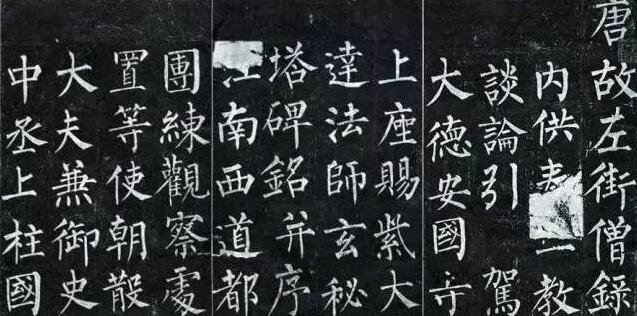 唐故左街僧錄
内供奉三教
談論引駕
大德安國寺
上座賜紫大
達法師玄秘
塔碑銘并序
江南西道都
團練觀察處
置等使朝散
大夫兼御史
中丞上柱國